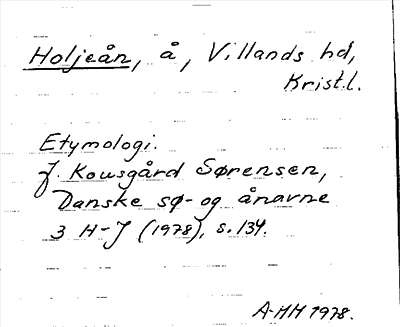 Holjeån, å, Villands hd,
Krist.l.
Etymologi.
J. Kousgård Sørensen,
Danske sø- og ånavne
3 H-J (1978), s. 134.
A-HH 1978.